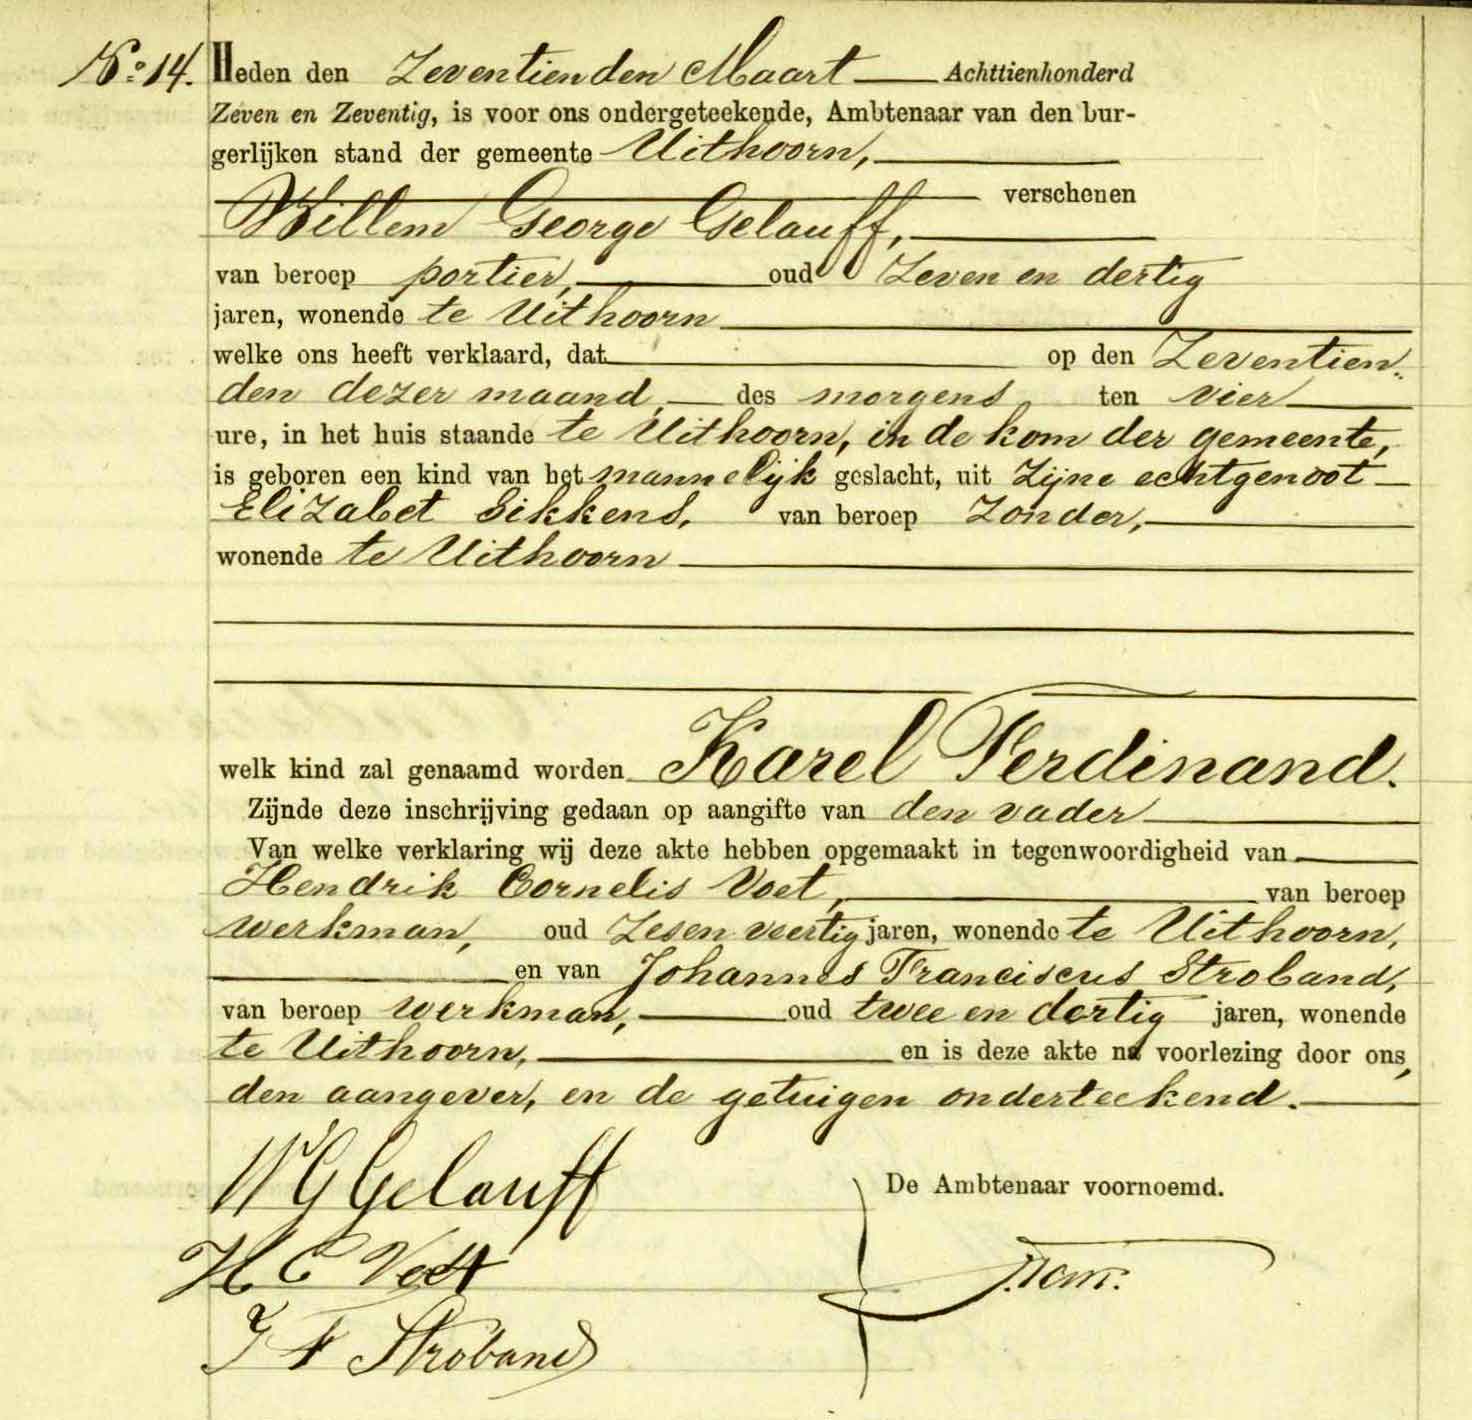 No. 14. Heden den Zeventienden Maart Achttienhonderd
Zeven en Zeventig, is voor ons ondergeteekende, Ambtenaar van den bur-
gerlijken stand der gemeente Uithoorn,
verschenen
Willem George Gelauff,
van beroep portier, oud Zeven en dertig
jaren, wonende te Uithoorn
welke ons heeft verklaard, dat op den Zeventien-
den dezer maand, des morgens ten vier
ure, in het huis staande te Uithoorn, in de kom der gemeente,
is geboren een kind van het mannelijk geslacht, uit zijne echtgenoot
Elizabet Sikkens, van beroep Zonder,
wonende te Uithoorn
welk kind zal genaamd worden Karel Ferdinand.
Zijnde deze inschrijving gedaan op aangifte van den vader
Van welke verklaring wij deze akte hebben opgemaakt in tegenwoordigheid van
Hendrik Cornelis Voet, van beroep
werkman, oud Zesen veertig jaren, wonende te Uithoorn,
en van Johannes Franciscus Stroband,
van beroep werkman, oud twee en dertig jaren, wonende
te Uithoorn, en is deze akte na voorlezing door ons,
den aangever, en de getuigen onderteekend.
WG Gelauff
De Ambtenaar voornoemd.
H C Voet
J F Stroband